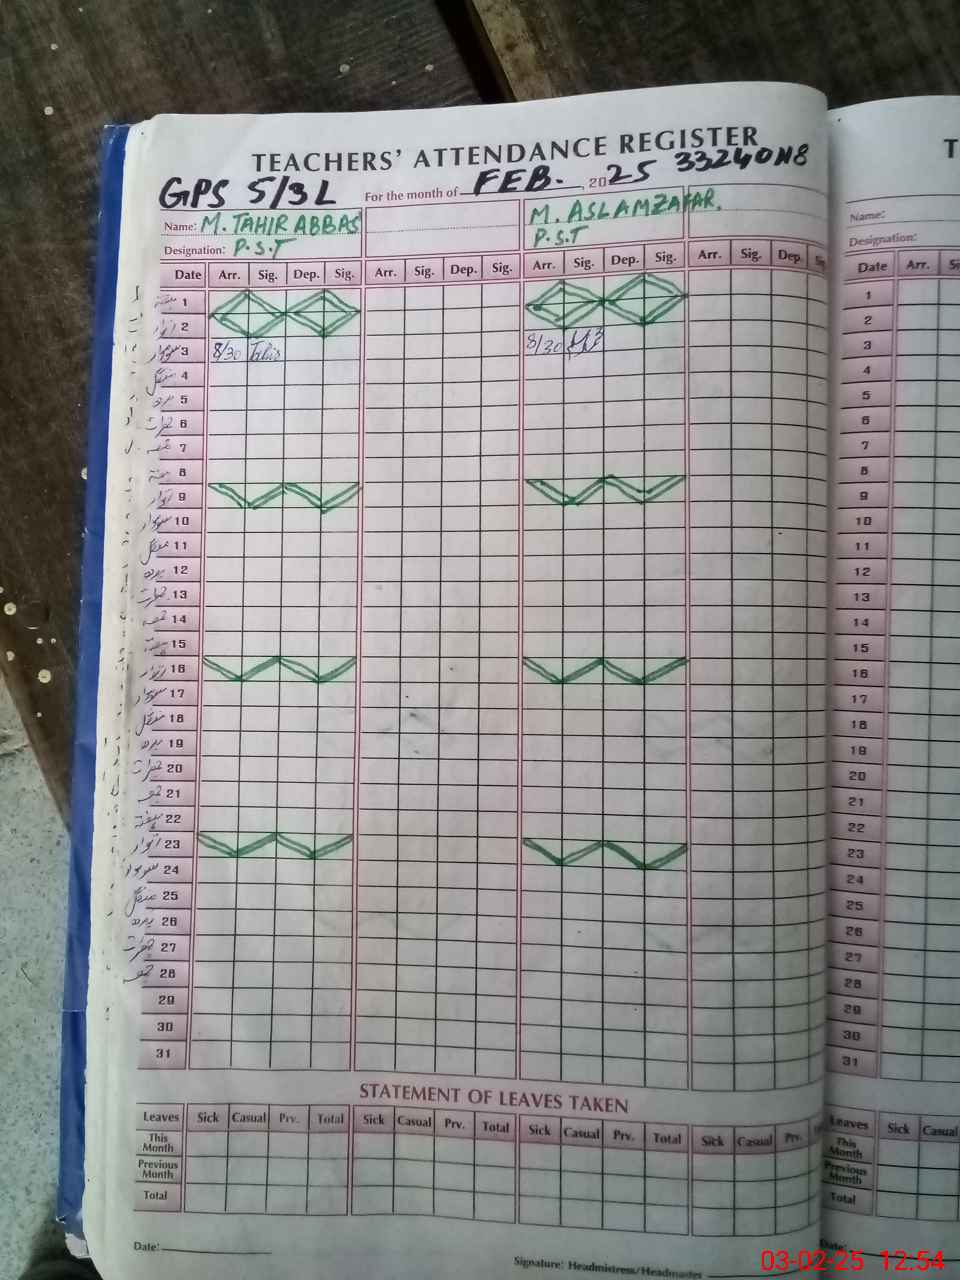 TEACHERS' ATTENDANCE REGISTER
GPS 5/3L For the month of FEB. , 2025 33240118
Name: M. TAHIR ABBAS M. ASLAM ZAFAR.
Designation: P.S.T P.S.T
Date Arr. Sig. Dep. Sig. Arr. Sig. Dep. Sig. Arr. Sig. Dep. Sig. Arr. Sig. Dep. Sig
ہفتہ 1
اتوار 2
سوموار 3 8/30 Tahir 8/30
منگل 4
بدھ 5
جمعرات 6
جمعہ 7
ہفتہ 8
اتوار 9
سوموار 10
منگل 11
بدھ 12
جمعرات 13
جمعہ 14
ہفتہ 15
اتوار 16
سوموار 17
منگل 18
بدھ 19
جمعرات 20
جمعہ 21
ہفتہ 22
اتوار 23
سوموار 24
منگل 25
بدھ 26
جمعرات 27
جمعہ 28
29
30
31
STATEMENT OF LEAVES TAKEN
Leaves Sick Casual Prv. Total Sick Casual Prv. Total Sick Casual Prv. Total Sick Casual Prv.
This Month
Previous Month
Total
Date:
Signature: Headmistress/Headmaster
T
Name:
Designation:
Date Arr. Si
1
2
3
4
5
6
7
8
9
10
11
12
13
14
15
16
17
18
19
20
21
22
23
24
25
26
27
28
29
30
31
Leaves Sick Casual
This Month
Previous Month
Total
Date:
03-02-25 12.54